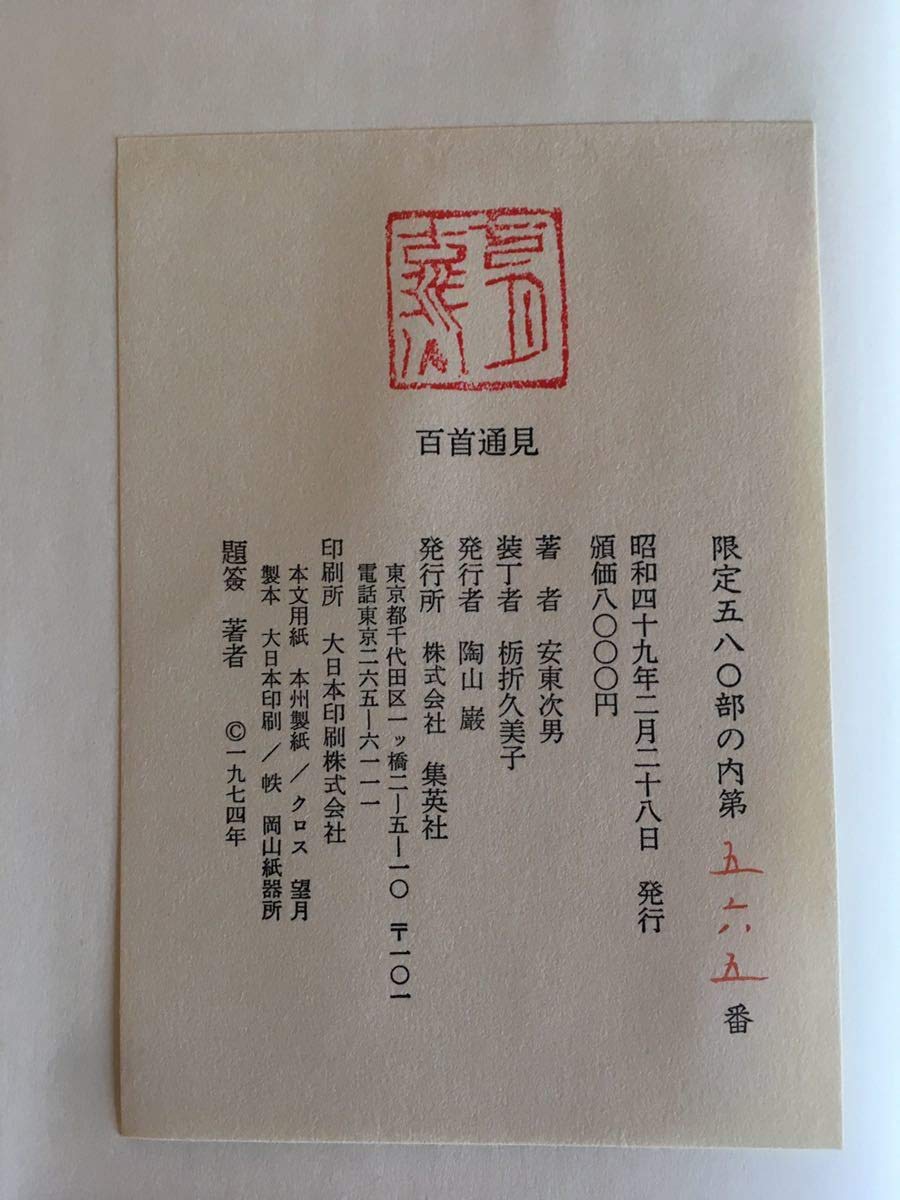 百首通見
限定五八〇部の内第五六五番
昭和四十九年二月二十八日　発行
頒価八〇〇〇円
著　者　安東次男
装丁者　栃折久美子
発行者　陶山　巌
発行所　株式会社　集英社
東京都千代田区一ッ橋二ー五ー一〇　〒一〇一
電話東京二六五ー六一一一
印刷所　大日本印刷株式会社
本文用紙　本州製紙／クロス　望月
製本　大日本印刷／帙　岡山紙器所
題簽　著者　©一九七四年